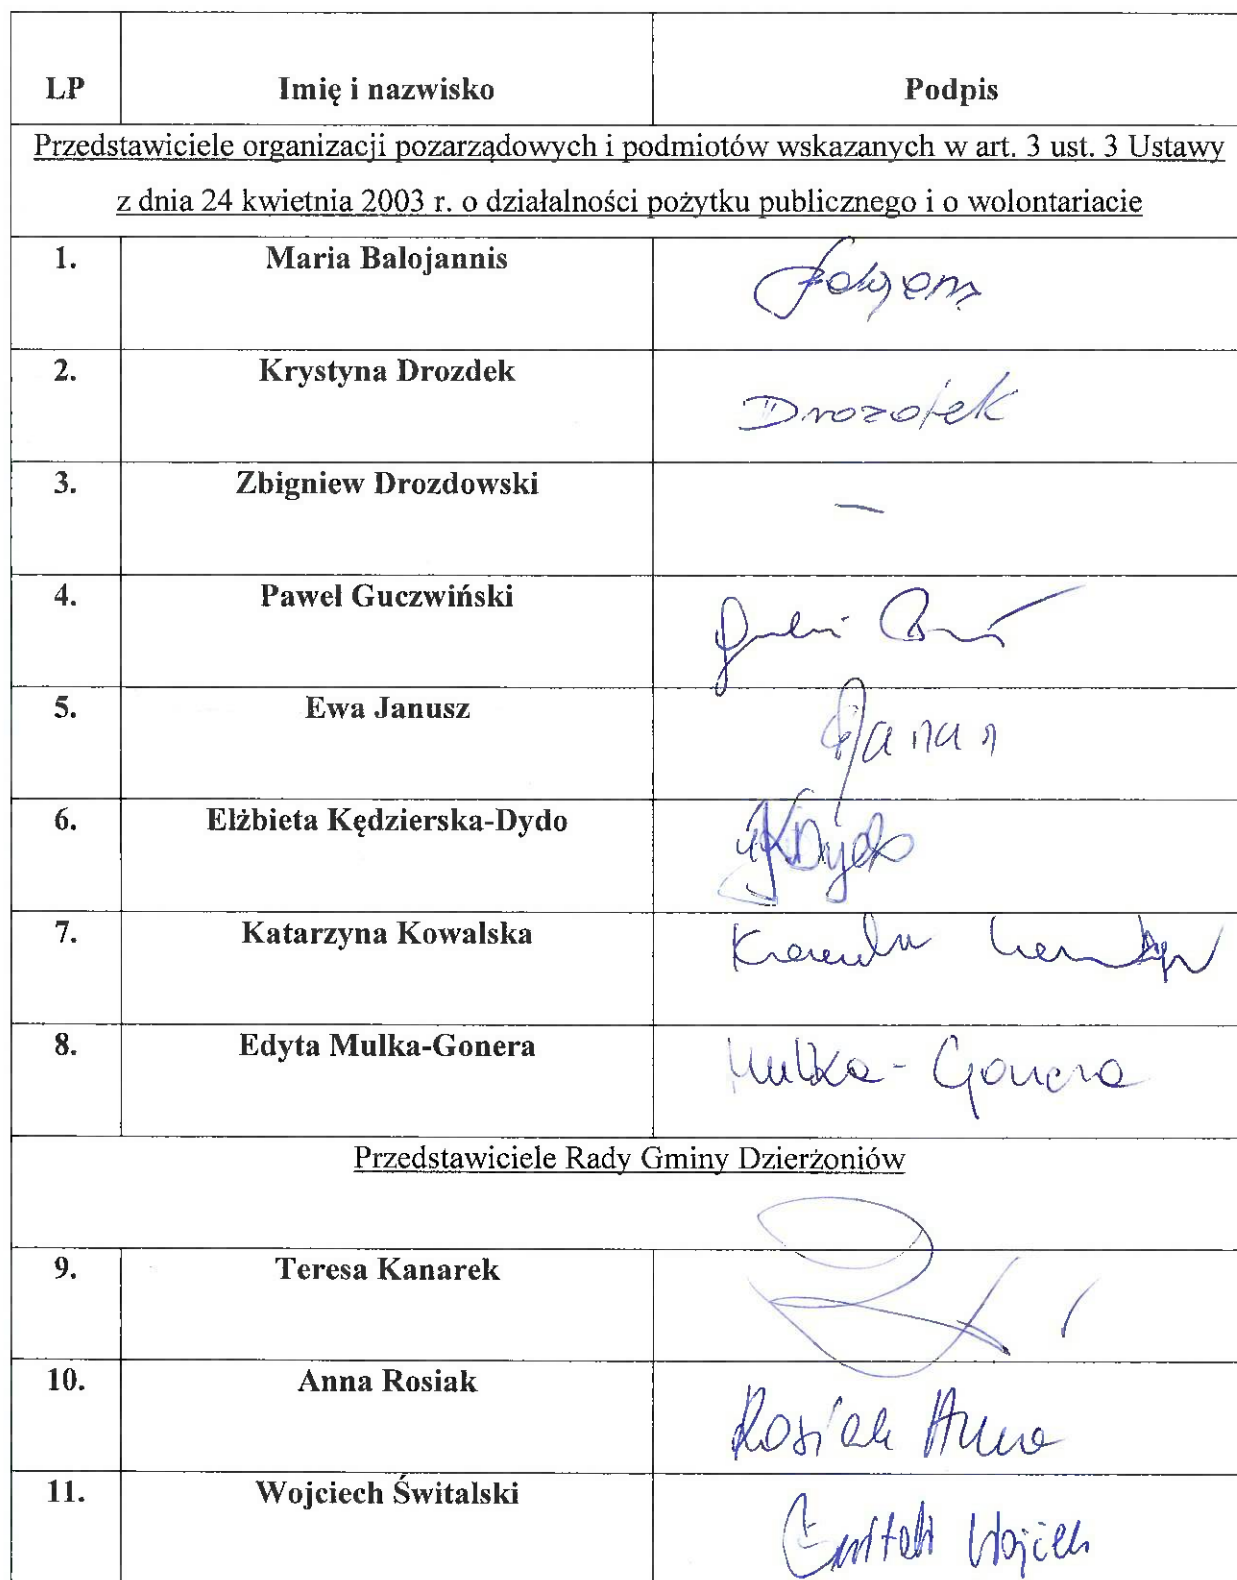 LP Imię i nazwisko Podpis
Przedstawiciele organizacji pozarządowych i podmiotów wskazanych w art. 3 ust. 3 Ustawy
z dnia 24 kwietnia 2003 r. o działalności pożytku publicznego i o wolontariacie
1. Maria Balojannis
2. Krystyna Drozdek Drozdek
3. Zbigniew Drozdowski –
4. Paweł Guczwiński
5. Ewa Janusz
6. Elżbieta Kędzierska-Dydo KDydo
7. Katarzyna Kowalska
8. Edyta Mulka-Gonera Mulka-Gonera
Przedstawiciele Rady Gminy Dzierżoniów
9. Teresa Kanarek
10. Anna Rosiak Rosiak Anna
11. Wojciech Świtalski